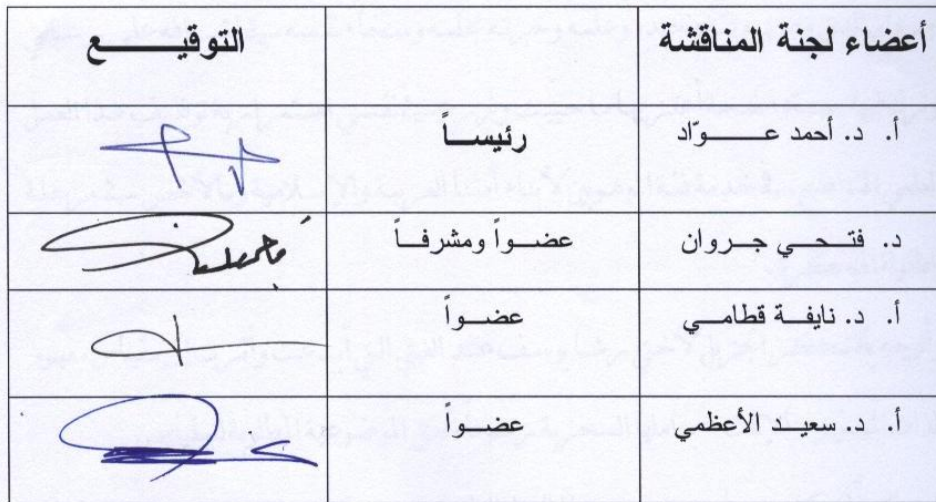 أعضاء لجنة المناقشة التوقيـــــع
أ. د. أحمد عـــــوّاد رئيســاً
د. فتـحـي جـروان عضــواً ومشرفــاً
أ. د. نايفـة قطامـي عضــواً
أ. د. سعيـد الأعظمي عضــواً